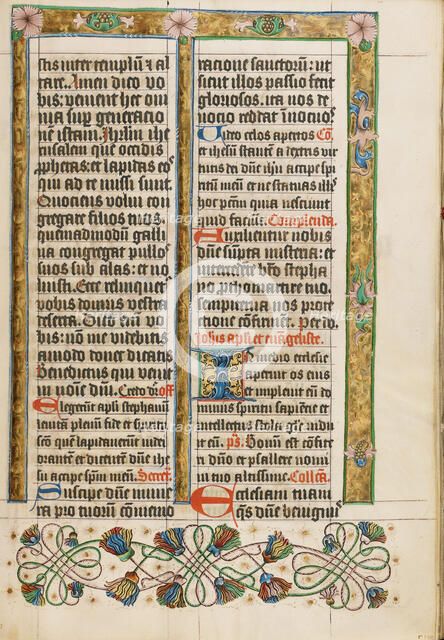 stis inter templũ ⁊ al
tare. Amen dico vo
bis: venient hec om
nia sup generatio
nẽ istam. Jhrlm ihe
rusalem que occidis
prophetas: et lapidas eos
qui ad te missi sunt.
Quociens volui con
gregare filios tuos
quemadmodũ galli
na congregat pullos
suos sub alas: et no
luisti. Ecce relinquet᷑
vobis domus vestra
deserta. Dico em̃ vo
bis: nõ me videbitis
amodo donec dicatis
Benedictus qui venit
in noĩe dñi. Credo dr̃ off
Elegerũt apĺi stephanum
levitã plenũ fide et spiritu
sctõ quẽ lapidaverũt iudei
orantẽ et dicentẽ dñe ihesu
accipe spm̃ meũ. Secret̃.
Suscipe dñe mune
ra pro tuorũ cõmemo
ratione sanctorũ: ut
sicut illos passio fecit
gloriosos. ita nos de
vocio reddat ĩnocuos
Video celos apertos Cõ
et ihesũ stantẽ a dextris vir
tutis dei dñe ihũ accipe spi
ritũ meũ et ne statuas illis
hoc pctm̃ quia nesciunt
quid faciũt. Complenda.
Auxilientur nobis
dñe sũpta misteria: et
intercedẽte bt̃o stepha
no prothomartire tuo.
sempiterna nos prote
ctione cõfirmẽt. per dõ.
Johis apĺi et euãgeliste.
In medio ecclesie
aperuit os eius
et implevit eũ do
minus spiritu sapiẽcie et
intellectus stola glorie indu
it eum. ps̃. Bonũ est cõfite
ri dño et psallere nomi
ni tuo altissime. Collc̃a.
Ecclesiam tuam
q̃s dñe benignus